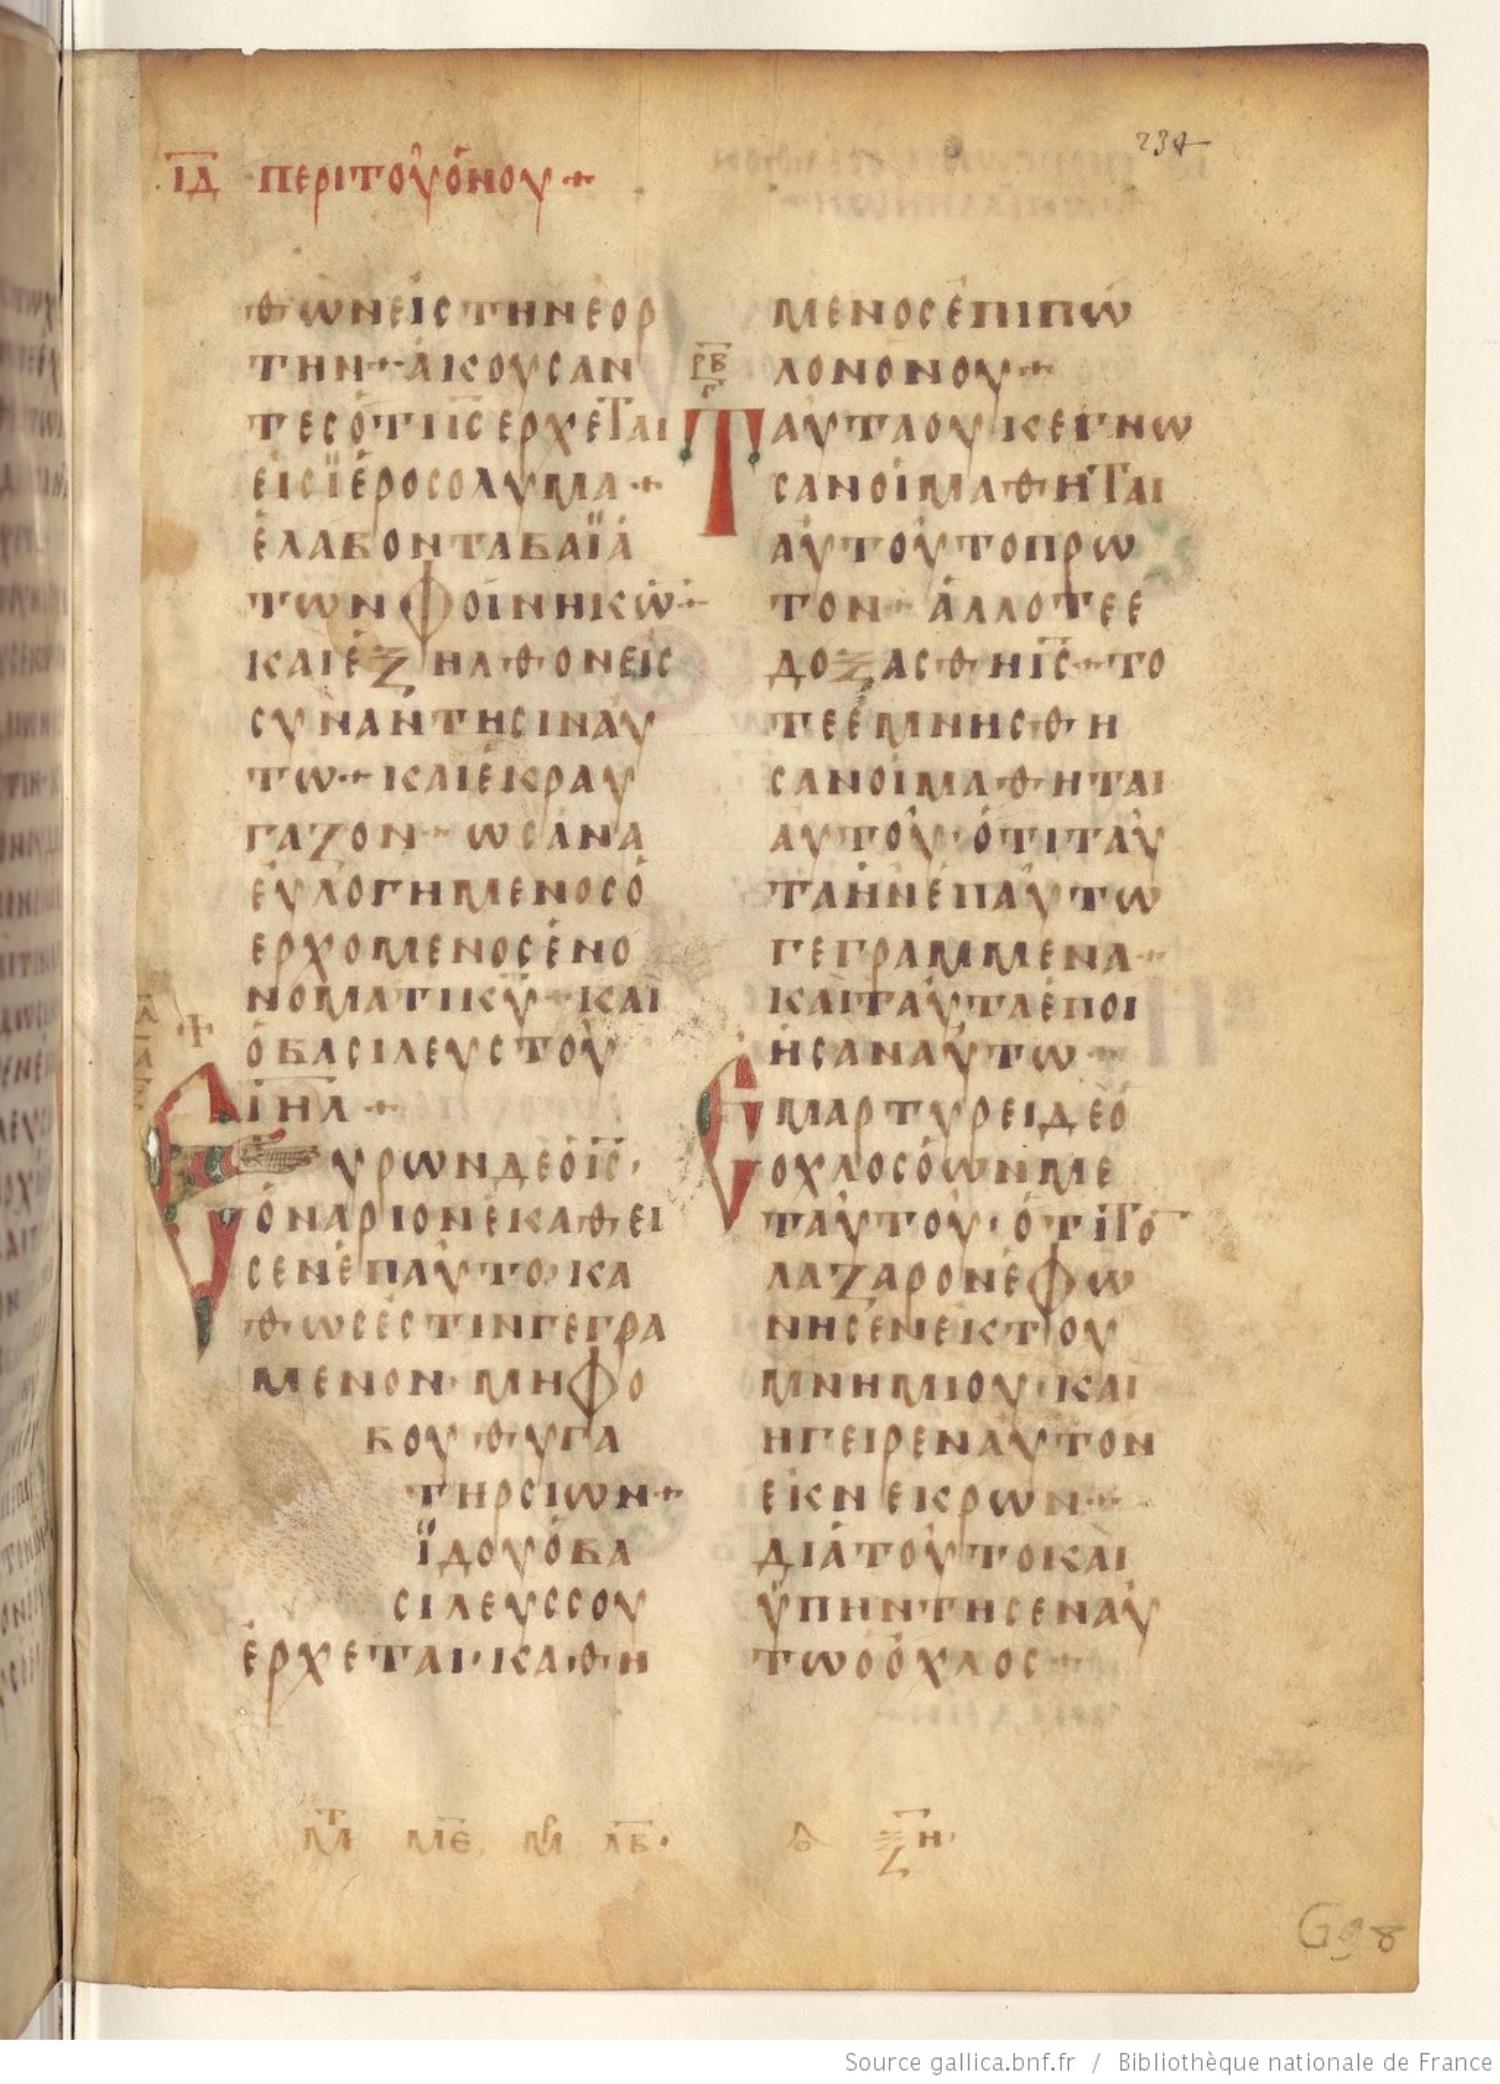 234
ΙΔ ΠΕΡΙ ΤΟΥ ΟΝΟΥ+
ΘΩΝΕΙΣΤΗΝΕΟΡ
ΤΗΝ+ΑΚΟΥΣΑΝ
ΤΕΣΟΤΙΙΣΕΡΧΕΤΑΙ
ΕΙΣΪΕΡΟΣΟΛΥΜΑ+
ΕΛΑΒΟΝΤΑΒΑΪΑ
ΤΩΝΦΟΙΝΗΚΩ+
ΚΑΙΕΞΗΛΘΟΝΕΙΣ
ΣΥΝΑΝΤΗΣΙΝΑΥ
ΤΩ+ΚΑΙΕΚΡΑΥ
ΓΑΖΟΝ+ΩΣΑΝΑ
ΕΥΛΟΓΗΜΕΝΟΣΟ
ΕΡΧΟΜΕΝΟΣΕΝΟ
ΝΟΜΑΤΙΚΥ+ΚΑΙ
ΟΒΑΣΙΛΕΥΣΤΟΥ
ΙΗΛ+
ΕΥΡΩΝΔΕΟΙΣ·
ΟΝΑΡΙΟΝΕΚΑΘΕΙ
ΣΕΝΕΠΑΥΤΟ·ΚΑ
ΘΩΣΕΣΤΙΝΓΕΓΡΑ
ΜΕΝΟΝ·ΜΗΦΟ
ΒΟΥΘΥΓΑ
ΤΗΡΣΙΩΝ+
ΪΔΟΥΟΒΑ
ΣΙΛΕΥΣΣΟΥ
ΕΡΧΕΤΑΙ·ΚΑΘΗ
ΜΕΝΟΣΕΠΙΠΩ
ΛΟΝΟΝΟΥ+
ΡΒ
Γ
ΤΑΥΤΑΟΥΚΕΓΝΩ
ΣΑΝΟΙΜΑΘΗΤΑΙ
ΑΥΤΟΥΤΟΠΡΩ
ΤΟΝ+ΑΛΛΟΤΕΕ
ΔΟΞΑΣΘΗΙΣ+ΤΟ
ΤΕΕΜΝΗΣΘΗ
ΣΑΝΟΙΜΑΘΗΤΑΙ
ΑΥΤΟΥ·ΟΤΙΤΑΥ
ΤΑΗΝΕΠΑΥΤΩ
ΓΕΓΡΑΜΜΕΝΑ+
ΚΑΙΤΑΥΤΑΕΠΟΙ
ΗΣΑΝΑΥΤΩ+
ΕΜΑΡΤΥΡΕΙΔΕΟ
ΟΧΛΟΣΟΩΝΜΕ
ΤΑΥΤΟΥ·ΟΤΙΤΟ
ΛΑΖΑΡΟΝΕΦΩ
ΝΗΣΕΝΕΚΤΟΥ
ΜΝΗΜΙΟΥ·ΚΑΙ
ΗΓΕΙΡΕΝΑΥΤΟΝ
ΕΚΝΕΚΡΩΝ+
ΔΙΑΤΟΥΤΟΚΑΙ
ΥΠΗΝΤΗΣΕΝΑΥ
ΤΩΟΟΧΛΟΣ+
ΜΤ ΜΕ ΜΡ ΛΒ· Λ ΞΗ·
G 98
Source gallica.bnf.fr / Bibliothèque nationale de France